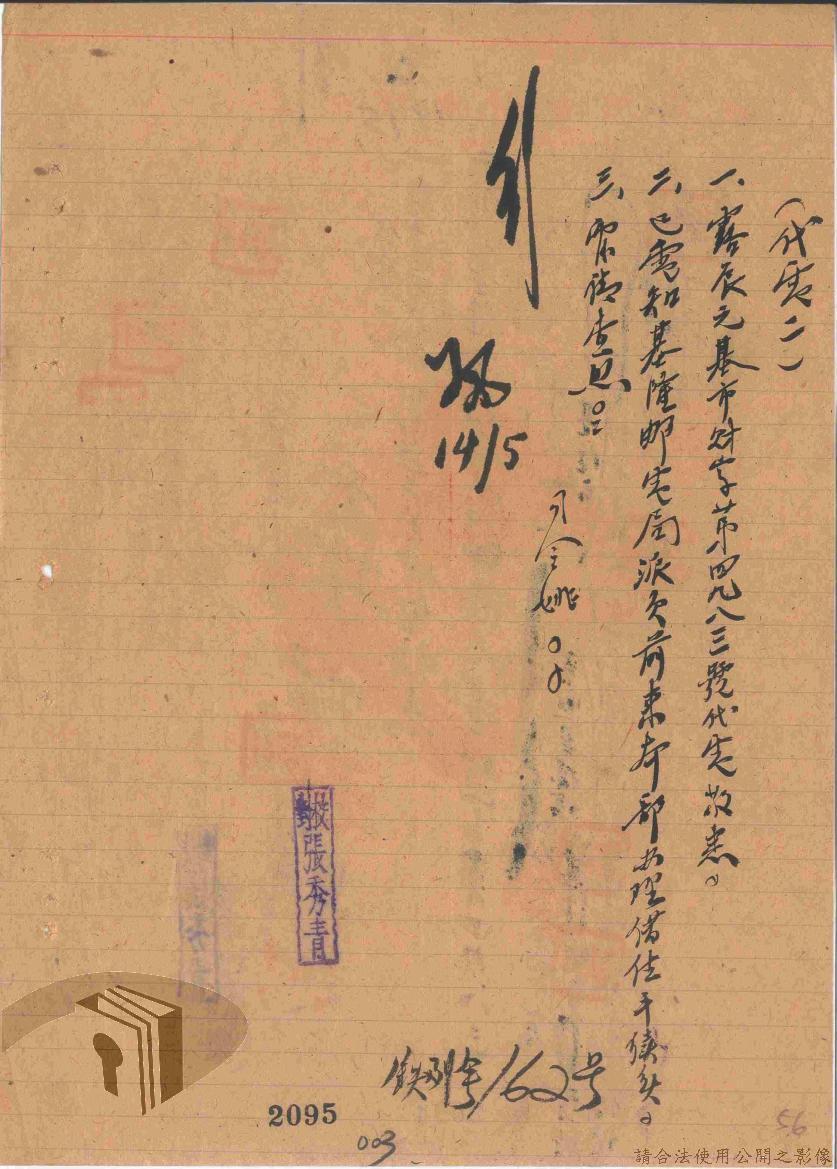 (代電二)
一、寮辰元基市財字第四九八三號代電敬悉。
二、已電知基隆郵電局派員前來本部办理借住手續矣。
三、即請查照。
司令姚○○
14/5
校對張秀青
162号
2095
003
56
請合法使用公開之影像